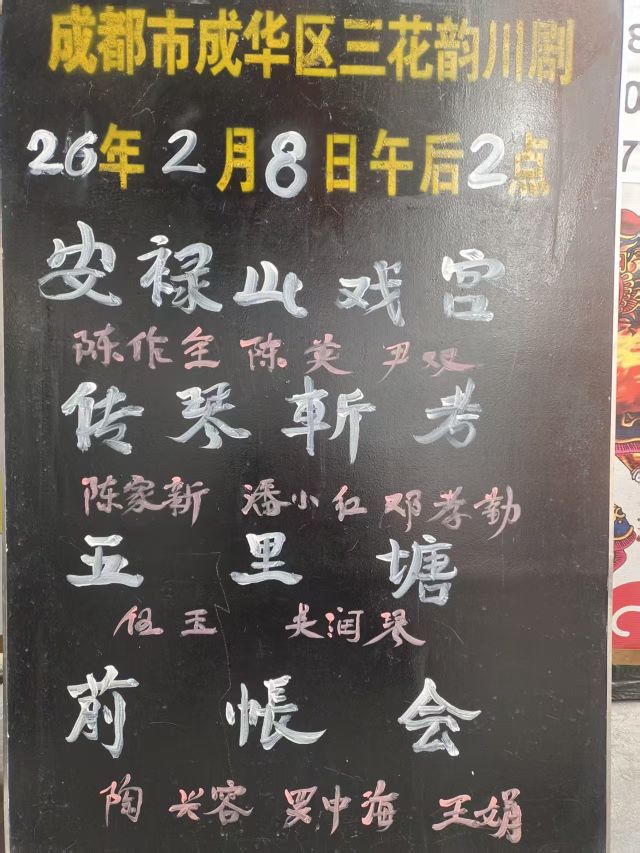 成都市成华区三花韵川剧
26年2月8日午后2点
安禄山戏宫
陈作全 陈英 尹双
传琴斩考
陈家新 潘小红 邓孝勤
五里塘
伍玉 关润琴
前帐会
陶兴容 罗中海 王娟
8
0
7